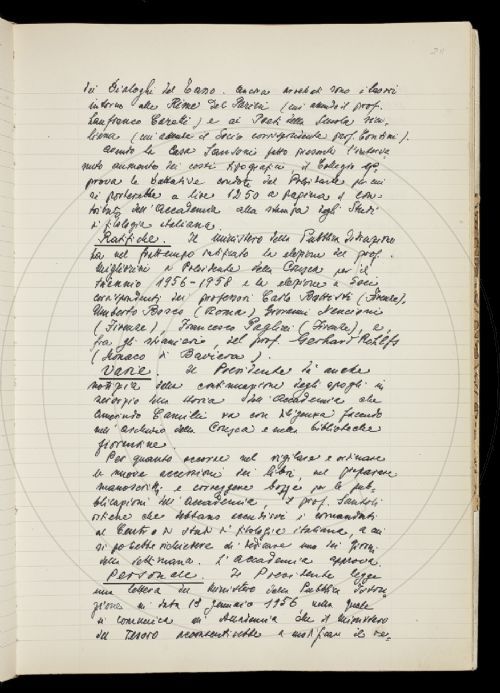 dei Dialoghi del Tasso. Ancora avviati sono i lavori
intorno alle Rime del Parini (cui attende il prof.
Lanfranco Caretti) e ai Poeti della Scuola sici-
liana (cui attende il Socio corrispondente prof. Contini).
Avendo la Casa Sansoni fatto presente l'interve-
nuto aumento dei costi tipografici, il Collegio ap-
prova le trattative condotte dal Presidente per cui
si porterebbe a lire 1250 a pagina il con-
tributo dell'Accademia alla stampa degli Studi
di filologia italiana.
Ratifiche. Il Ministero della Pubblica Istruzione
ha nel frattempo ratificato la elezione del prof.
Migliorini a Presidente della Crusca per il
triennio 1956-1958 e la elezione a Soci
corrispondenti dei professori Carlo Battisti (Firenze),
Umberto Bosco (Roma), Giovanni Nencioni
(Firenze), Francesco Pagliai (Firenze), e,
fra gli stranieri, del prof. Gerhard Rohlfs
(Monaco di Baviera).
Varie. Il Presidente dà anche
notizia della continuazione degli spogli in
servizio una storia dell'Accademia che
Amerindo Camilli va con diligenza facendo
nell'archivio della Crusca e nelle biblioteche
fiorentine.
Per quanto occorre nel vigilare e ordinare
le nuove accessioni dei libri, nel preparare
manoscritti e correggere bozze per le pub-
blicazioni dell'Accademia il prof. Santoli
ritiene che debbano accudirvi i comandati
al Centro di studi di filologia italiana, a cui
si potrebbe richiedere di dedicare uno dei giorni
della settimana. L'Accademia approva.
Personale. Il Presidente legge
una lettera del Ministero della Pubblica Istru-
zione in data 19 gennaio 1956 nella quale
si comunica all'Accademia che il Ministero
del Tesoro acconsentirebbe a modificare il re-